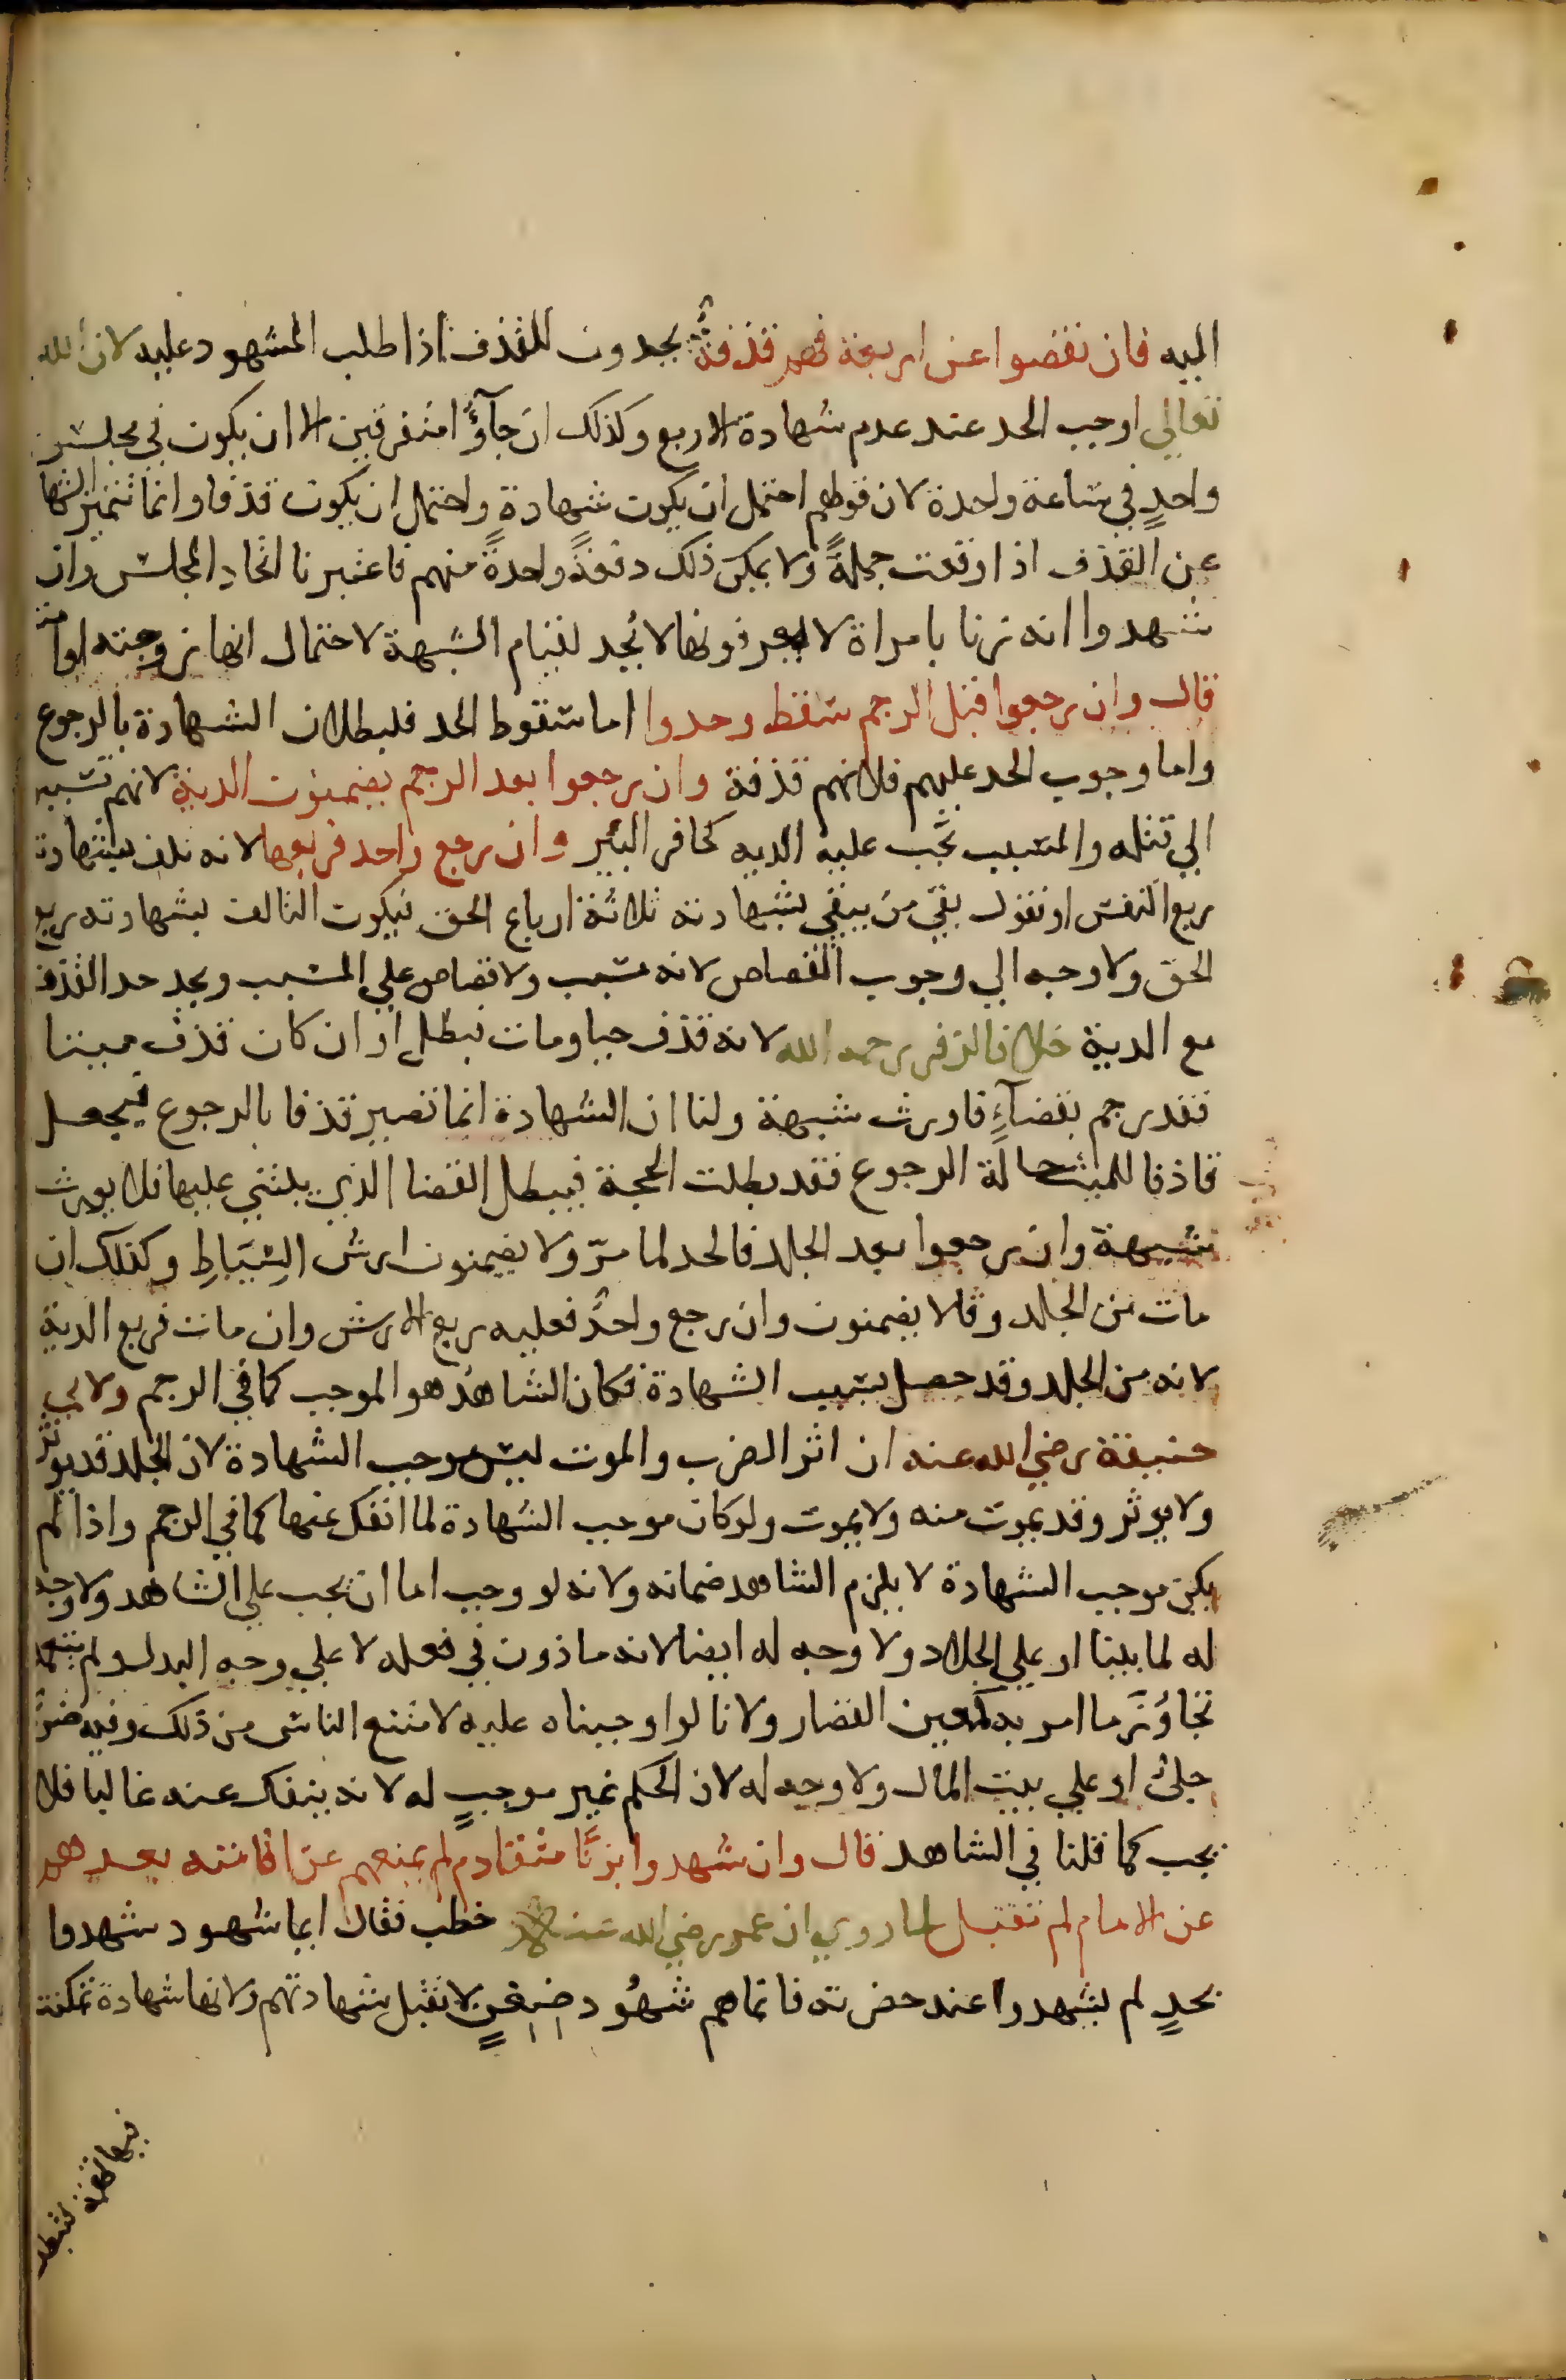 اليه فان نقصوا عن اربعة فهم قذفة يحدون للقذف اذا طلب المشهود عليه لان الله
تعالي اوجب الحد عند عدم شهادة الاربع وكذلك ان جآؤا متفرقين الا ان يكون في مجلس
واحدٍ في ساعة واحدة لان قولهم احتمل ان يكون شهادةٍ واحتمل ان يكون قذفا وانما تتميز الشها
عن القذف اذا وقعت جملةً ولا يمكن ذلك دفعةً واحدةً منهم فاعتبرنا اتحاد المجلس وان
شهدوا انه زنا بامراة لا يعرفونها لا يُحد لقيام الشبهة لاحتمال انها زوجته او امته
قال وان رجعوا قبل الرجم سقط وحدوا اما سقوط الحد فلبطلان الشهادة بالرجوع
واما وجوب الحد عليهم فلانهم قذفة وان رجعوا بعد الرجم يضمنون الدية لانهم تسببو
الي قتله والمتسبب تجب عليه الديه كحافر البئر وان رجع واحد فربعها لانه تلف بشهادته
ربع النفس او نقول بقي من يبقي بشهادته ثلاثة ارباع الحق فيكون التالف بشهادته ربع
الحق ولا وجه الي وجوب القصاص لانه مسبب ولا قصاص علي المسبب ويحد حد القذف
مع الدية خلافا لزفر رحمه الله لانه قذف حيا ومات فبطل او ان كان قذف ميتا
فقد رجم بقضآءٍ فاورث شبهة ولنا ان الشهادة انما تصير قذفا بالرجوع فيجعل
قاذفا للميت حالة الرجوع فقد بطلت الحجة فيبطل القضا الذي يبتني عليها فلا يورث
شبهة وان رجعوا بعد الجلد فالحد لما مرّ ولا يضمنون ارش السِّيَاطِ وكذلك ان
مات من الجلد وقالا يضمنون وان رجع واحدٌ فعليه ربع الارش وان مات فربع الدية
لانه من الجلد وقد حصل بسبب الشهادة فكان الشاهدُ هو الموجب كما في الرجم ولابي
حنيفة رضي الله عنه ان اثر الضرب والموت ليس موجب الشهادة لان الجلد قد يوثر
ولا يوثر وقد يموت منه ولا يموت ولو كان موجب الشهادة لما انفك عنها كما في الرجم واذا لم
يكن موجب الشهادة لا يلزم الشاهد ضمانه ولانه لو وجب اما ان يجب علي الشاهد ولا وجه
له لما بينا او علي الجلاد ولا وجه له ايضا لانه ماذون في فعله لا علي وجه البدل ولم يتعمد
تجاوُزَ ما امر به كمعين القصار ولانا لو اوجبناه عليه لامتنع الناس من ذلك وفيه ضرر
جليٌ او علي بيت المال ولا وجه له لان الحكم غير موجبٍ له لانه ينفك عنه غالبا فلا
يجب كما قلنا في الشاهد قال وان شهدوا بزنًا متقادم لم يمنعهم عن اقامته بعدهم
عن الامام لم تقبل لما روي ان عمر رضي الله عنه خطب فقال ايما شهود شهدوا
بحدٍ لم يشهدوا عند حضرته فانما هم شهُود ضِغنٍ لا تقبل شهادتهم ولانها شهادة تمكنت
فيها تهمة فتبطل